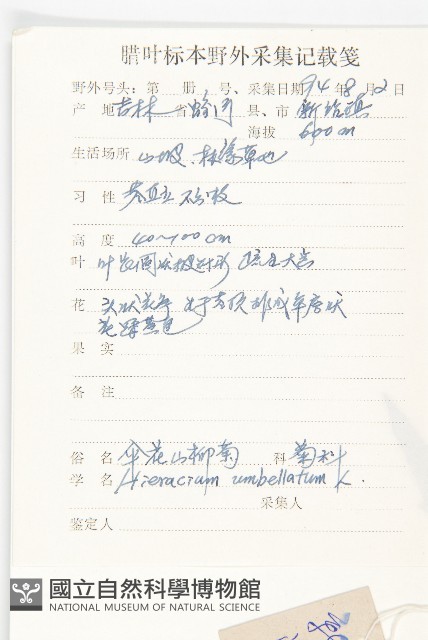 腊叶标本野外采集记载笺
野外号头：第 册 号、采集日期 94 年 8 月 2 日
产 地 吉林 省 蛟河 县、市 新站镇
海拔 600 m
生活场所 山坡、林缘草地
习 性 茎直立 不分枝
高 度 40~100 cm
叶
花 头状花序
花 黄色
果 实
备 注
俗 名 伞花山柳菊 科 菊科
学 名 Hieracium umbellatum L.
采集人
鉴定人
國立自然科學博物館
NATIONAL MUSEUM OF NATURAL SCIENCE